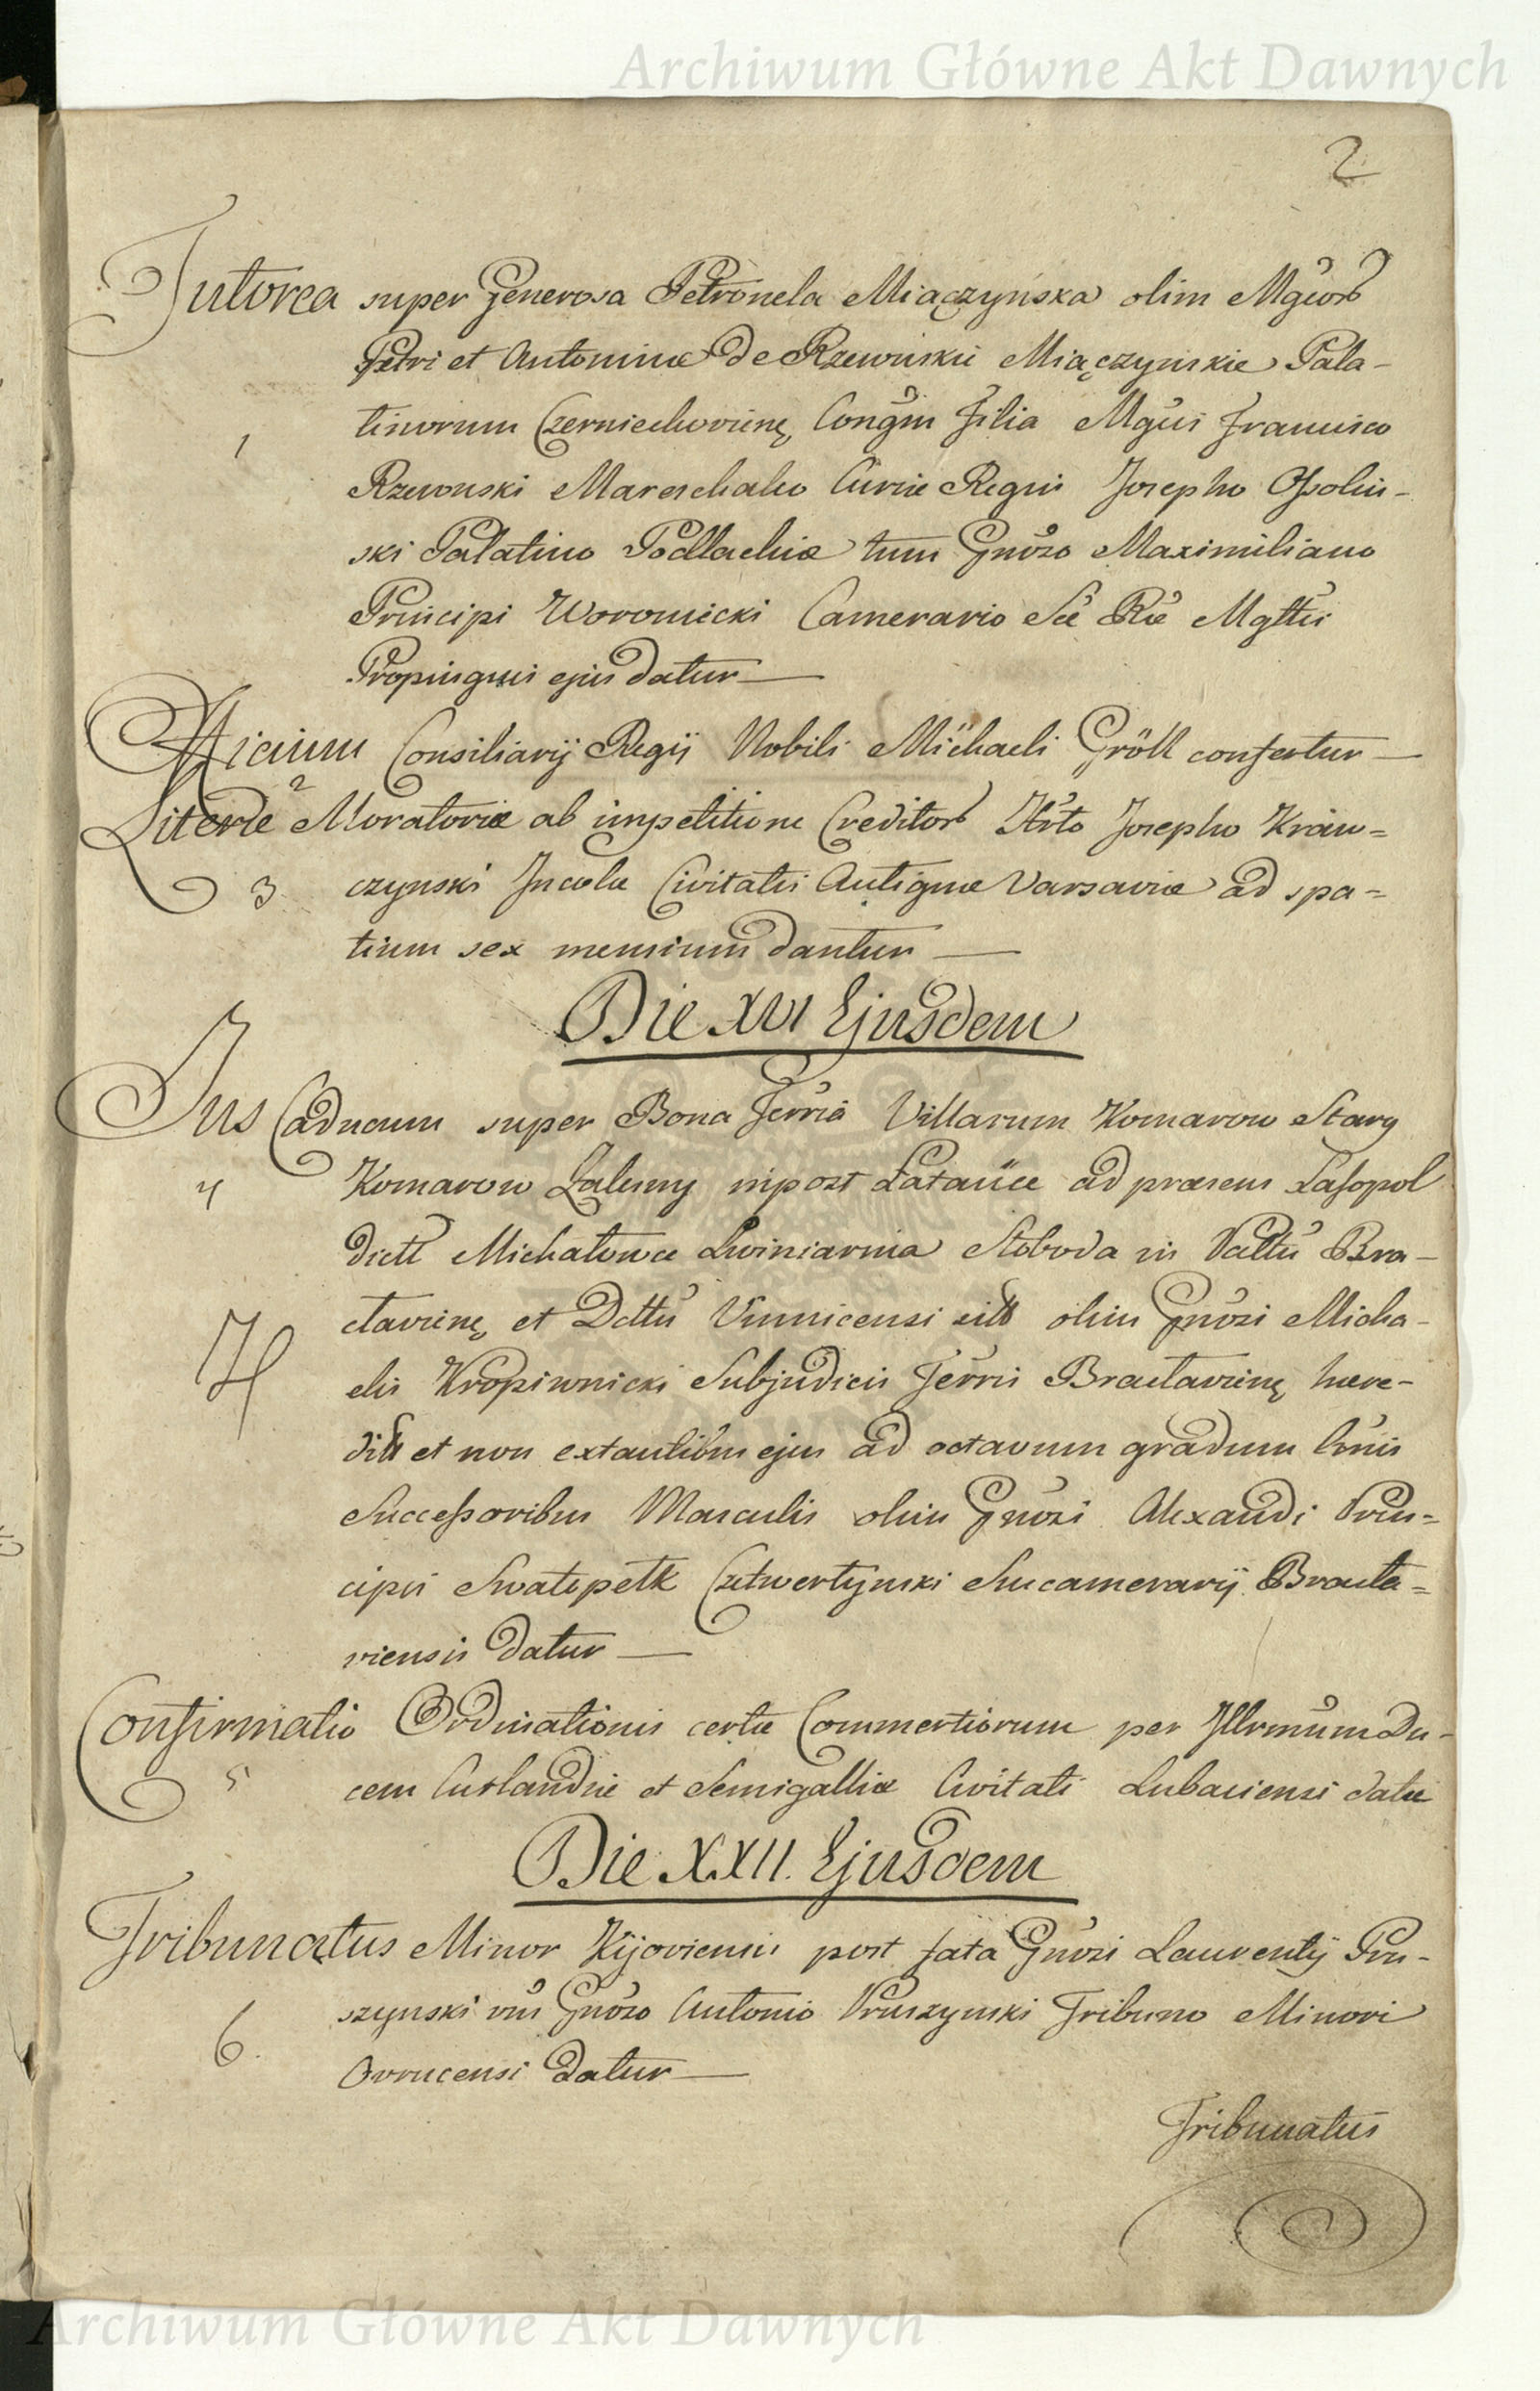 Archiwum Główne Akt Dawnych
2
Tutorea super Generosa Petronela Miączyńska olim Mgcorum
Petri et Antoninæ de Rzewuskie Miączynskie Pala-
tinorum Czerniechoviene, Congm Filia Mgcis Francisco
1
Rzewuski Mareschalco Curiæ Regni Josepho Ossolin-
ski Palatino Podlachiæ tum Gnoso Maximiliano
Principi Woroniecki Camerario Sæ Ræ Mgttis
Propinquis ejus datur
Officium Consiliarij Regij Nobili Michaeli Gröll confertur
2
Literæ Moratoriæ ab impetitione Creditorum Hrto Josepho Kraw=
3 czynski Incolæ Civitatis Antiquæ Varsaviæ ad spa=
tium sex mensium dantur
Die XVI Ejusdem
Jus Caducum super Bona Terria Villarum Komarow Stary
4 Komarow Zalesny in post Łatańce ad præsens Lasopol
dictt Michałowce Lwiniarnia Słoboda in Palttu Bra-
claviene, et Dcttu Vinnicensi sitt olim Gnosi Micha-
elis Kropiwnicki Subjudicis Terris Braclaviene, hære-
ditt et non extantibus ejus ad octavum gradum Cnis
Successoribus Masculis olim Gnosi Alexandi Prin=
cipis Swatopełk Czetwertynski Succamerarij Bracla=
viensis datur
Confirmatio Ordinationis certæ Commertiorum per Illrmum Du-
5 cem Curlandiæ et Semigalliæ Civitati Lubaviensi datæ
Die XXII. Ejusdem
Tribunatus Minor Kijoviensis post fata Gnosi Laurentij Pru-
szynski vni Gnoso Antonio Pruszynski Tribuno Minori
6. Ovrucensi datur
Tribunatus
Archiwum Główne Akt Dawnych